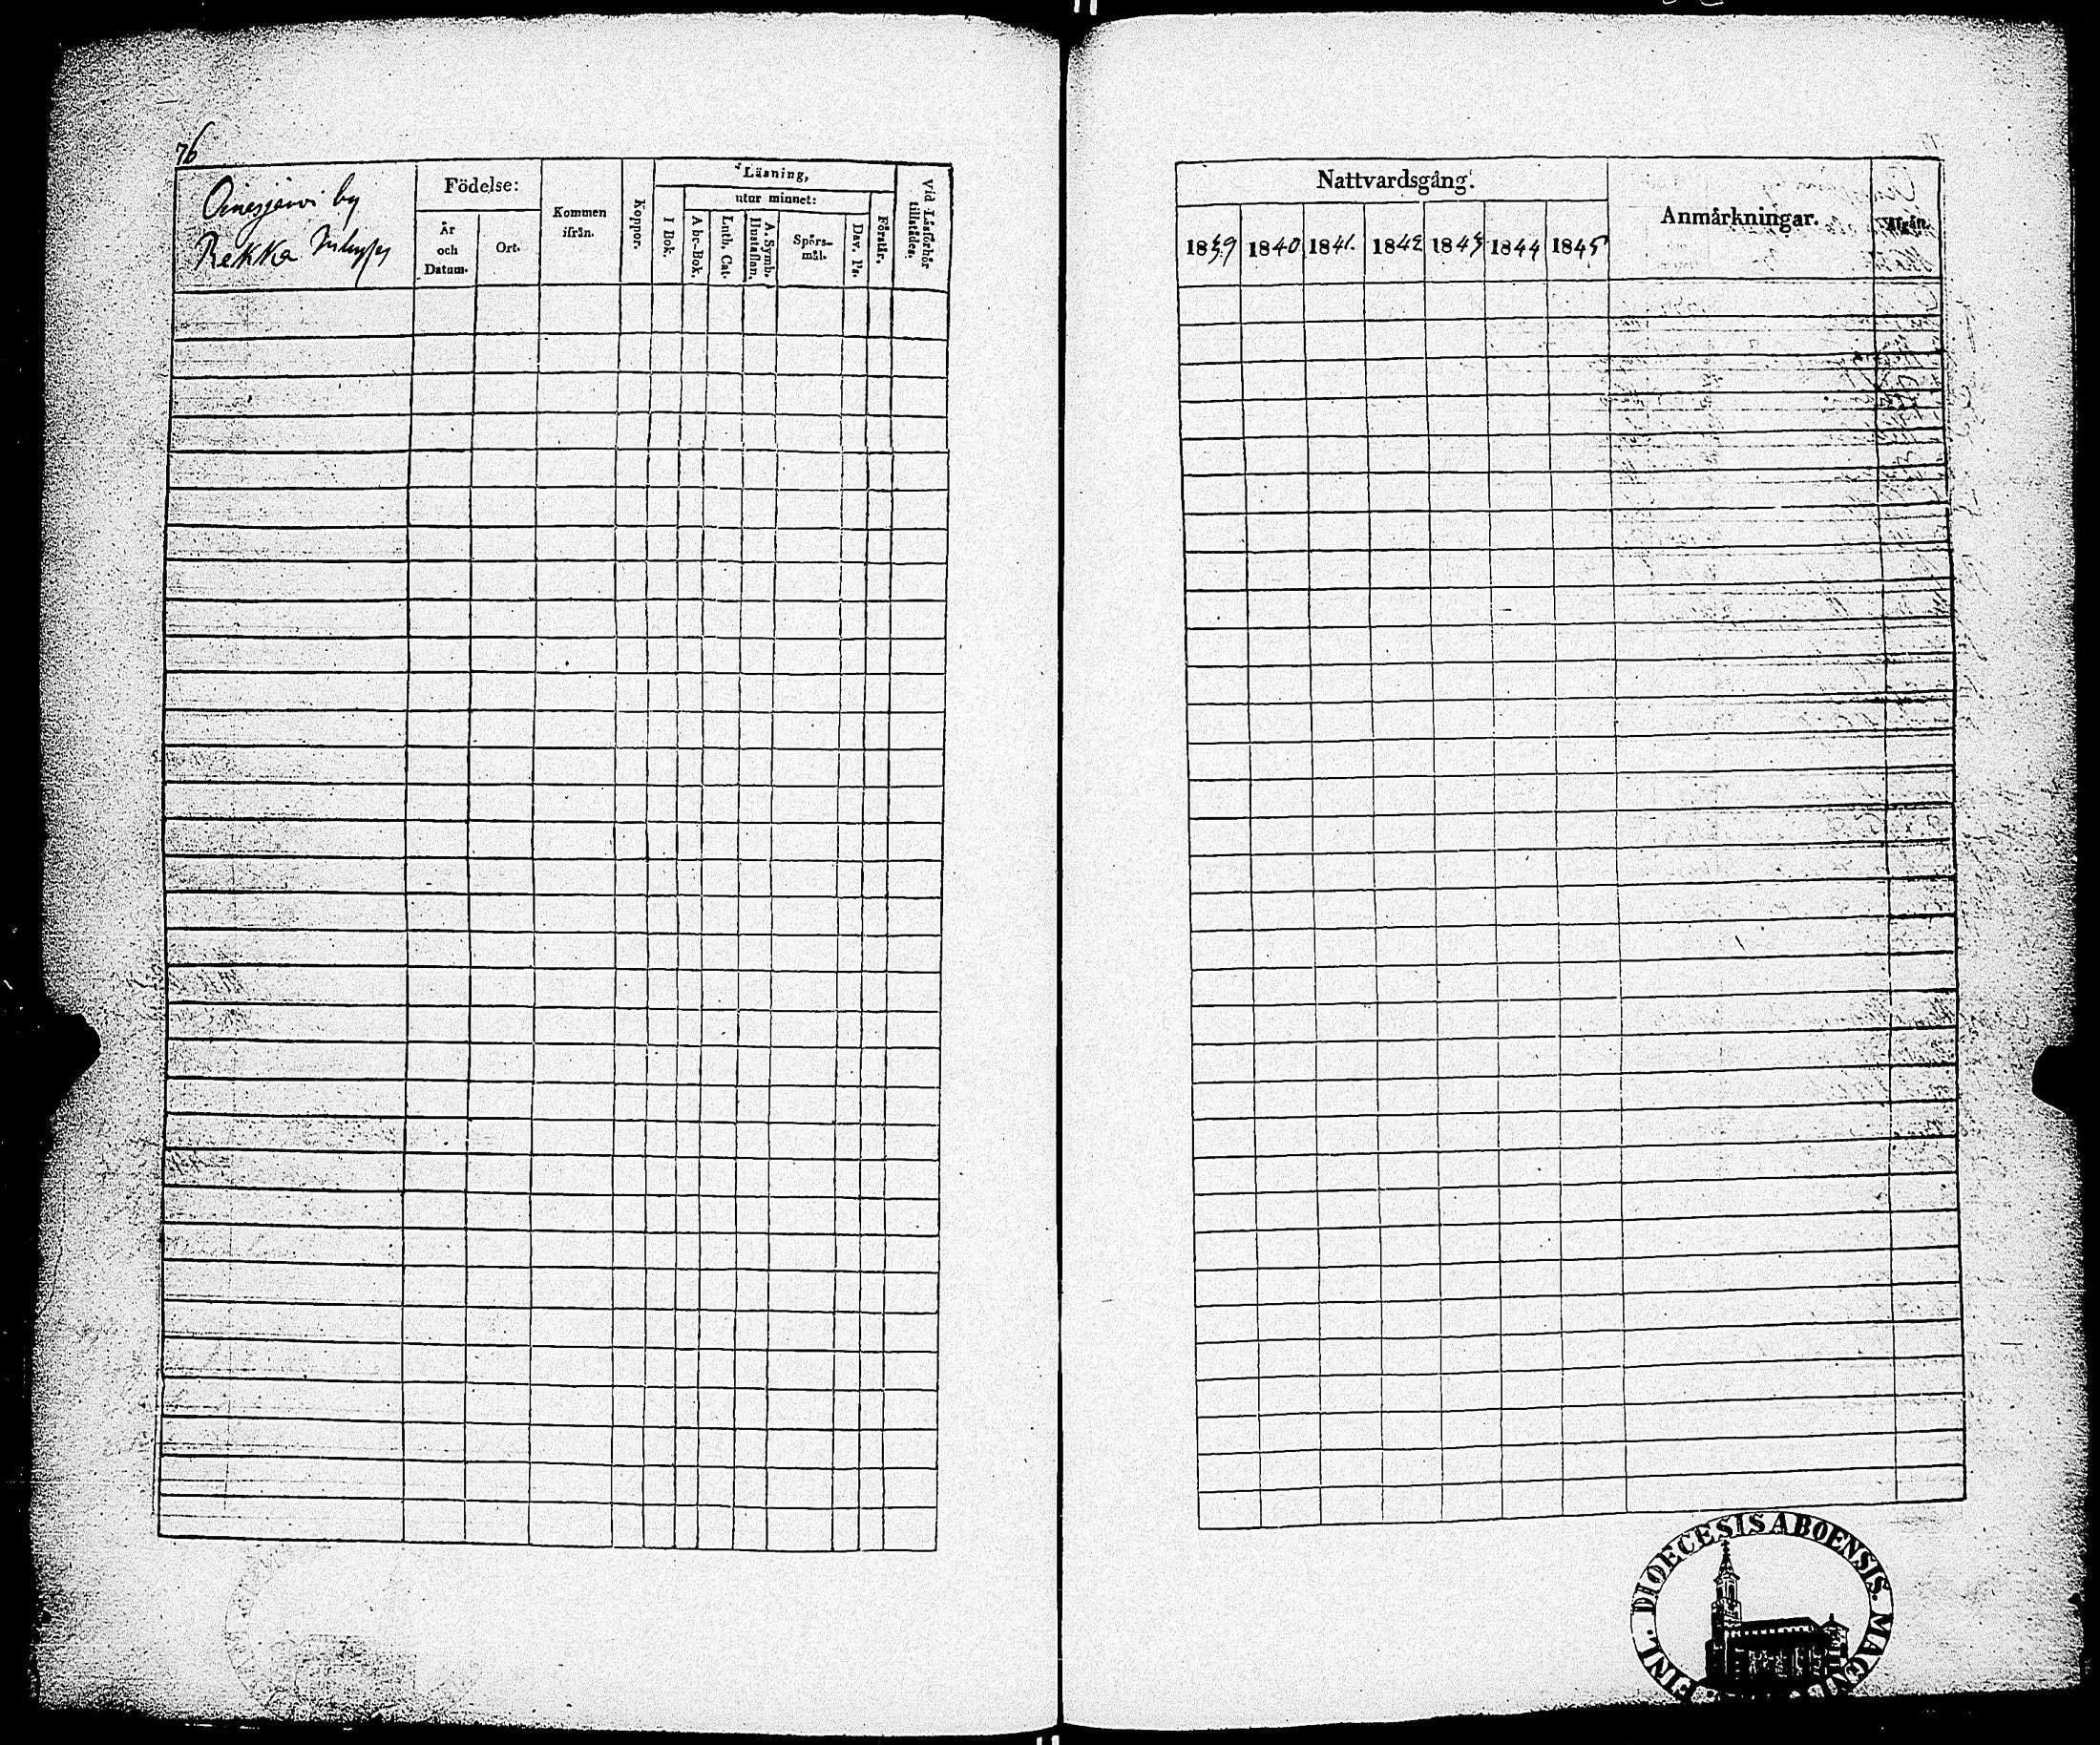 76
Oinasjärvi by
Rekka
Födelse:
År
och
Datum.
Ort.
Kommen
ifrån.
Koppor.
Läsning,
I Bok.
utur minnet:
A bc-Bok.
Luth. Cat.
A. Symb.
Hustaflan.
Spörs-
mål.
Dav. Ps.
Förstår.
Vid Läsförhör
tillstädes.
Nattvardsgång.
1839 1840 1841. 1842 1843 1844 1845
Anmärkningar.
Afgått.
FINL. DIOECESIS ABOENSIS. MAGN